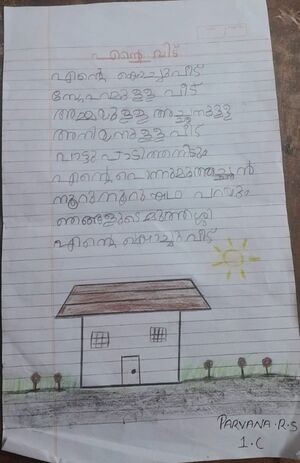 എന്റെ വീട്
എന്റെ കൊച്ചുവീട്
സ്നേഹമുള്ള വീട്
അമ്മയുള്ള അച്ഛനുള്ള
അനിയനുള്ള വീട്
പാട്ടു പാടിത്തന്നിടും
എന്റെ പൊന്നുമുത്തച്ഛൻ
നൂറുനൂറു കഥ പറയും
ഞങ്ങളുടെ മുത്തശ്ശി
എന്റെ കൊച്ചുവീട്
PARVANA.R.S
1.C